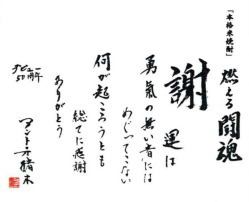 「本格米焼酎」
燃える闘魂
謝
運は
勇氣の無い者には
めぐってこない
何が起ころうとも
総てに感謝
ありがとう
アントニオ猪木
デビュー
50